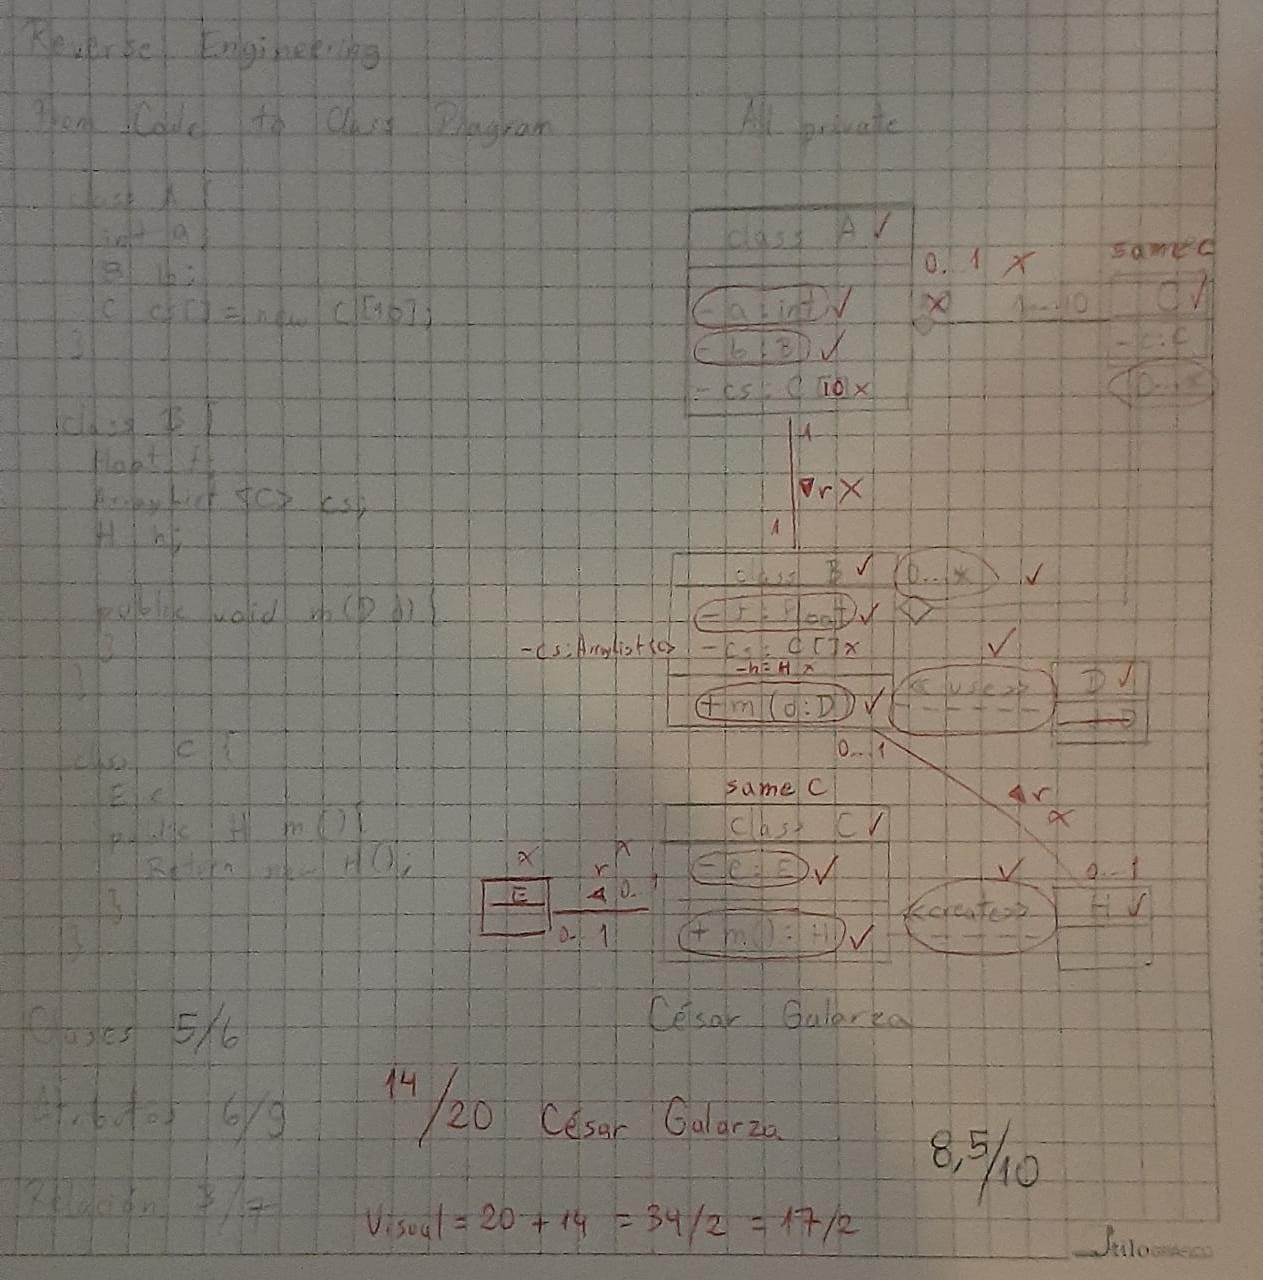 Reverse Engineering
From Code to Class Diagram
All private
class A {
int a;
B b;
C cs[] = new C[10];
}
class B {
float f;
ArrayList <C> cs;
H h;
public void m(D d) {
}
}
class C {
E e
public H m(){
Return new H();
}
}
class A ✓
- a : int ✓
- b : B ✓
- cs : C [10] x
0..1 x
same C
x 1...10
C ✓
- c : C
0...*
1
r x
1
class B ✓
0...* ✓
- f : float ✓
- cs : ArrayList<C>
- cs : C [] x
- h = H x
+ m (d : D) ✓
✓
<< use >>
D ✓
0..1
r
x
0..1
same C
class C ✓
- e : E ✓
+ m () : H ✓
x
E
r x
0..1
0..1
✓
<<create>>
H ✓
César Galarza
Clases 5/6
Atributos 6/9
Relación 3/7
14/20 César Galarza
8,5/10
Visual = 20 + 14 = 34/2 = 17/2